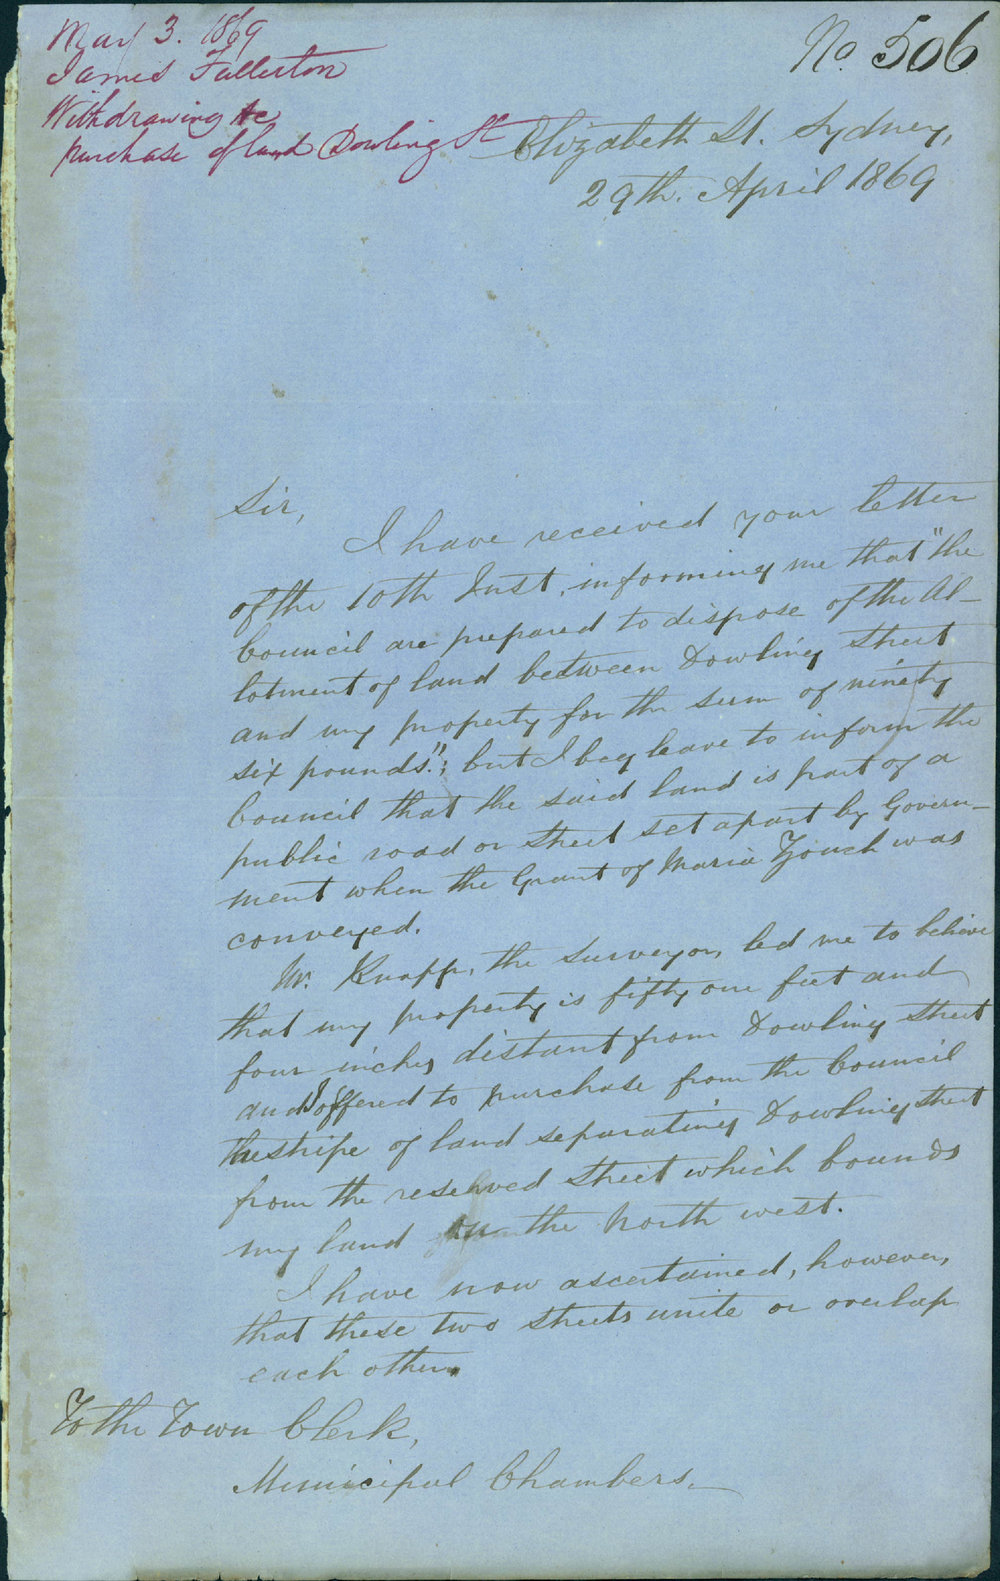 May 3. 1869
James Fullerton
Withdrawing &c
purchase of land Dowling St
No. 506
Elizabeth St. Sydney,
29th. April 1869
Sir,
I have received your letter
of the 10th Inst. informing me that "the
Council are prepared to dispose of the Al-
lotment of land between Dowling Street
and my property for the sum of ninety
six pounds."; but I beg leave to inform the
Council that the said land is part of a
public road or Street set apart by Govern-
ment when the Grant of Maria Zouch was
conveyed.
Mr. Knapp, the Surveyor, led me to believe
that my property is fifty one feet and
four inches distant from Dowling Street
and I offered to purchase from the Council
the stripe of land separating Dowling Street
from the reserved Street which bounds
my land on the North west.
I have now ascertained, however,
that these two Streets unite or overlap
each other.
To the Town Clerk,
Municipal Chambers.